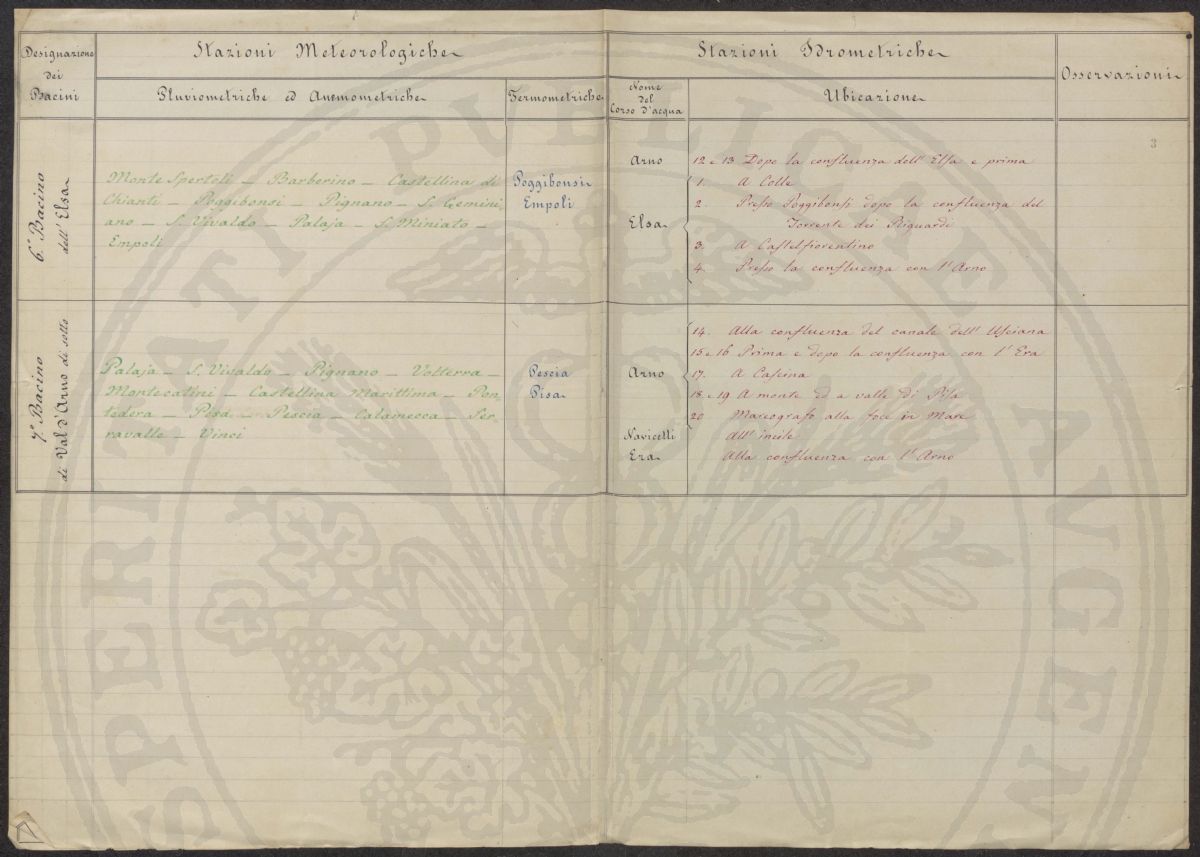 Designazione
dei
Bacini
Stazioni Meteorologiche
Stazioni Idrometriche
Osservazioni
Pluviometriche ed Anemometriche
Termometriche
Nome
del
Corso d'acqua
Ubicazione
3
6° Bacino
dell' Elsa
Monte Spertoli – Barberino – Castellina di
Chianti – Poggibonsi – Pignano – S. Gemini
ano – S. Vivaldo – Palaja – S. Miniato –
Empoli
Poggibonsi
Empoli
Arno
12 e 13 Dopo la confluenza dell' Elsa e prima
Elsa
1. A Colle
2. Presso Poggibonsi dopo la confluenza del
Torrente dei
3. A Castelfiorentino
4. Presso la confluenza con l'Arno
7° Bacino
di Val d'Arno di sotto
Palaja – S. Vivaldo – Pignano – Volterra –
Montecatini – Castellina Marittima – Pon
tedera – Pescia – Calamecca – Ser
ravalle – Vinci
Pescia
Pisa
Arno
14. Alla confluenza del canale dell' Usciana
15 e 16 Prima e dopo la confluenza con l'Era
17. A Cascina
18 e 19 A monte ed a valle di Pisa
20 Mareografo alla foce in Mare
Navicelli
all' incile
Era
Alla confluenza con l'Arno
PROSPERITATI PUBLICAE AUGENDAE